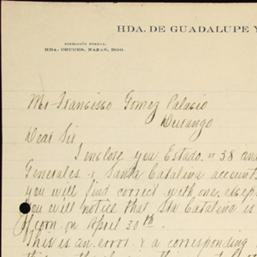 HDA. DE GUADALUPE Y
HDA. CRUCES, NAZAS, DGO.
Mr Francisco Gomez Palacio
Durango
Dear Sir
I inclose you Estado n° 38 and
Generales & Santa Catalina account
you will find correct with one excep
You will notice that Sta Catalina is
corn on April 30th.
This is an error & a corresponding